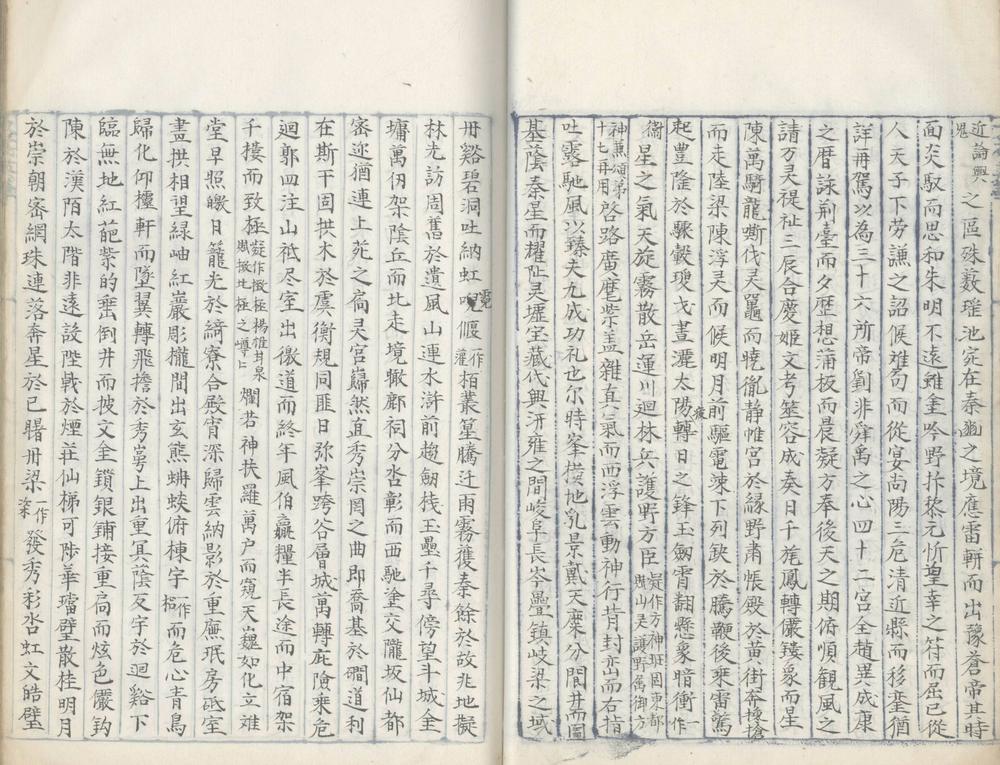 論興之區殊薮璀池寔在秦之境應雷軒而出豫蒼帝其時
面炎馭而思和朱明不遠雖金吟野拆棃元忻望幸之符而屈已從
人天子下劳謙之詔候难苟而從宴尚陽三危清近縣而移蛮猶
詳再駕以為三十六所帝劉非舜禹之心四十二宫全趙異成康
之曆詠荊臺而夕歷想蒲板而晨凝方奉後天之期俯順観風之
請万灵禔祉三辰合慶姬文考筮容成奏日千旄鳳轉儼鏤象而星
陳萬騎龍嘶伐灵鼉而曉胤静帷宫於緑野肅帳殿於黄街奔攙搶
而走陸梁陳浮灵而候明月前驅電竦下列缺於騰鞭後乗雷
起豊隆於驟轂瓊戈晝灑太陽轉日之鋒玉劔霄翻懸象暗衝一作
衞星之氣天旋霧散岳運川迴林兵護野方臣疑作方神班固東都
賦山灵護野属御方
神兼頌弟十七再月啓路廣麾紫盖雜真氣而西浮雲動神行背封峦而右指
吐露馳風以臻夫九成功礼也尔時峯横地乳景戴天麋分閒井而圖
基蔭秦星而耀阯灵墟宝藏代興汧雍之間峻阜長岑疊鎮岐梁之域
丹谿碧洞吐納虹霓偃一作灌栢叢篁騰迁雨霧獲秦餘於故兆地擬
林光訪周舊於遺風山連水滸前趨劔栈玉壘千尋傍望斗城金
墉萬仞架陰丘而北走境轍鄜祠分沓彰而西馳塗交隴坂仙都
密迩猶連上苑之扄灵宫巋然直秀崇罔之曲即喬基於磵道利
在斯干固拱木於虞衡規同匪日弥峯跨谷層城萬轉庇險乗危
迴郭四注山祗尽室出徼道而終年風伯贏糧半長途而中宿架
千樓而致極疑作徼極揚雄甘泉賦撠北極之嶟嶟爛若神扶羅萬户而窺天巍如化立难
堂早照皦日籠光於綺寮合殿宵深歸雲納影於重廡珉房砥室
畫拱相望緑岫紅巖彫櫳間出玄熊蚺蛺俯棟宇一作桷而危心青鳥
歸化仰櫺軒而墜翼轉飛擔於秀萼上出重冥蔭反宇於迴谿下
臨無地紅葩紫的垂倒井而披文金鏁銀鋪接重扄而炫色儼鈎
陳於漢陌太階非遠設陛戟於煙莊仙梯可陟華璫璧散桂明月
於崇朝密網珠連落奔星於已曙丹梁一作深發秀彩沓虹文皓壁